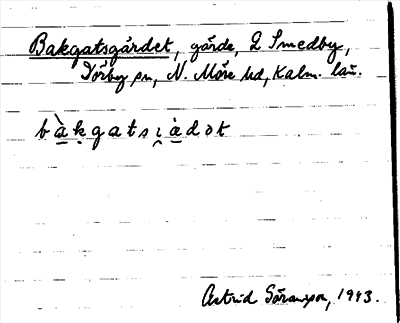 Bakgatsgärdet, gärde, L Smedby,
Törby sn, N. Möre hd, Kalm. län.
bàkgatsi̯àdət
Astrid Göransson, 1943.